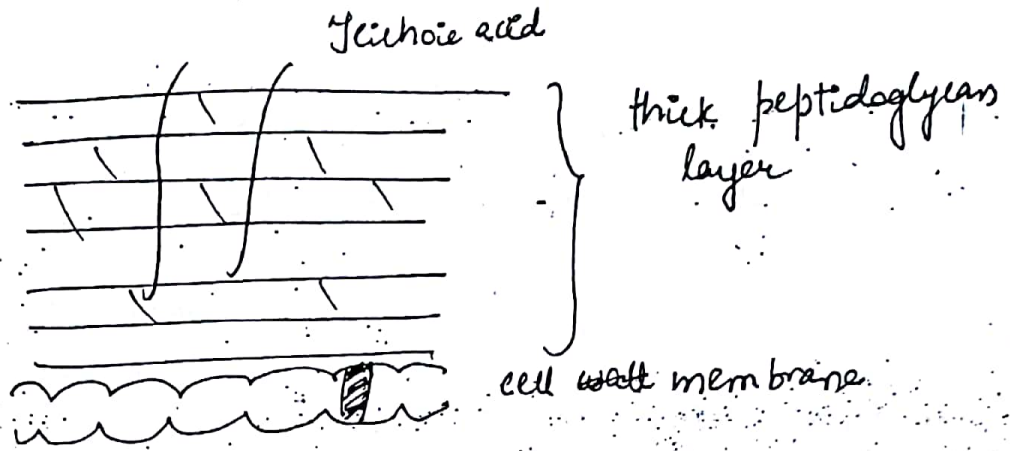 Teichoic acid
thick peptidoglycan
layer
cell membrane